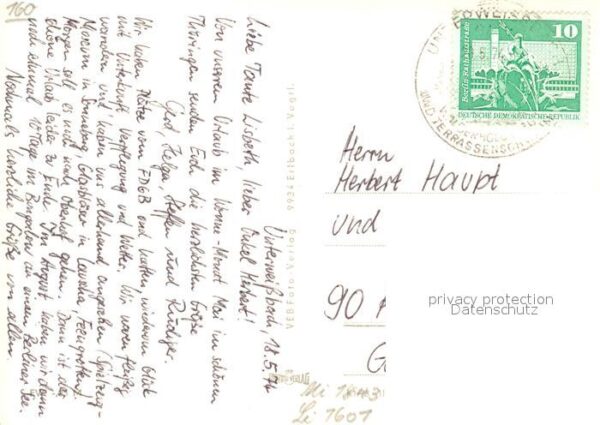 160
Unterweißbach, 18.5.76
Liebe Tante Lisbeth, lieber Onkel Herbert!
Von unserem Urlaub im Wonne-Monat Mai im schönen
Thüringen senden Euch die herzlichsten Grüße
Gerd, Helga, Steffen und Rüdiger.
Wir haben Plätze vom FDGB und hatten wiederum Glück
mit Unterkunft, Verpflegung und Wetter. Wir waren fleißig
wandern und haben uns allerhand angesehen (Spielzeug-
Museum in Sonneberg, Glasbläser in Lauscha, Feengrotten).
Morgen soll es noch nach Oberhof gehen. Dann ist der
schöne Urlaub leider zu Ende. Im August haben wir dann
noch einmal 10 Tage im Bungalow an einem Berliner See.
Nochmals herzliche Grüße von allen.
VEB Bild und Heimat
Verlag
9934 Erlbach i. V.
10
Berlin, Rathausstraße
DEUTSCHE DEMOKRATISCHE REPUBLIK
UNTERWEISSB
UND TERRASSENSCH
Herrn
Herbert Haupt
und
90
privacy protection
Datenschutz
Mi 1843
Li 1601